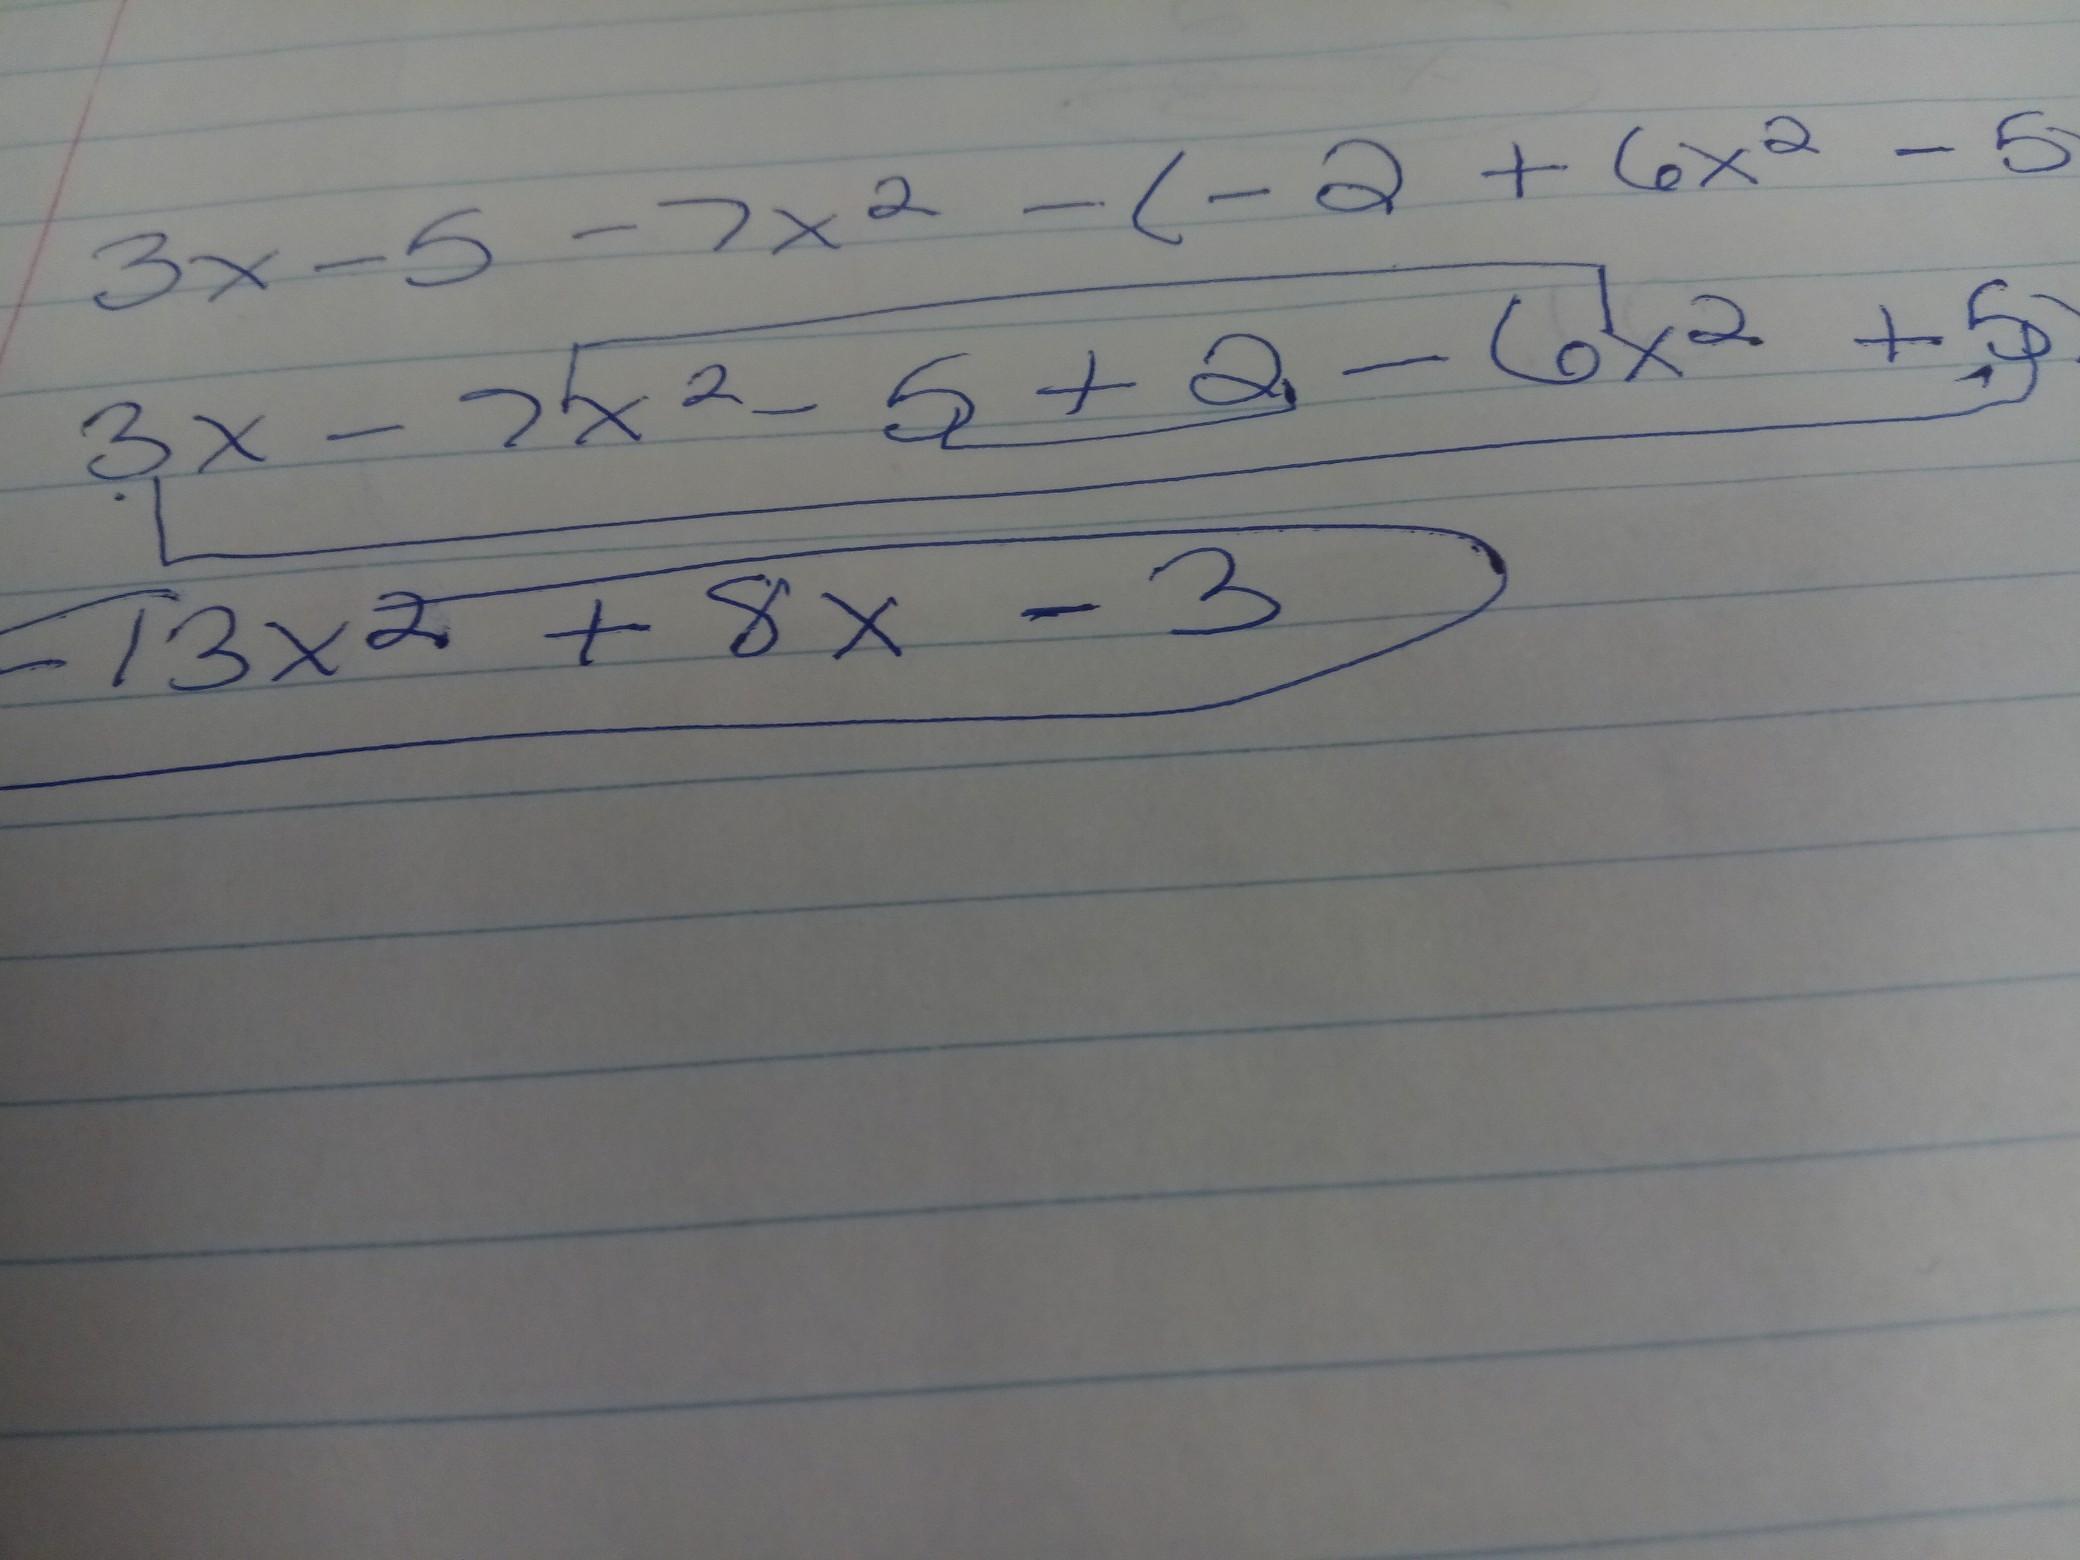 3x - 5 - 7x² - (-2 + 6x² - 5
3x - 7x² - 5 + 2 - 6x² + 5
-13x² + 8x - 3